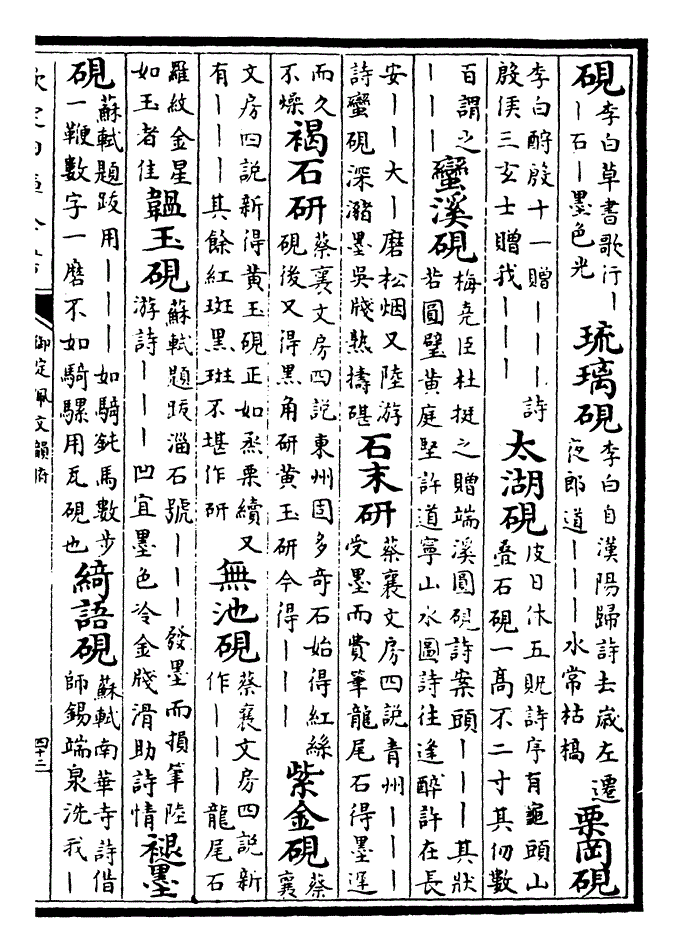 硯 李白草書歌行丨丨石丨墨色光 琉璃硯 李白自漢陽歸詩去歲左遷夜郎道丨丨丨水常枯槁 栗岡硯
李白酧殷十一贈丨丨丨詩殷侯三玄士贈我丨丨丨 太湖硯 皮日休五貺詩序有龜頭山疊石硯一高不二寸其仞數
百謂之丨丨丨 蠻溪硯 梅堯臣杜挺之贈端溪圓硯詩案頭丨丨丨其狀若圓璧黄庭堅許道寧山水圖詩往逢醉許在長
安丨丨大丨磨松烟又陸游詩蠻硯深潴墨吳牋熟擣碪 石末研 蔡襄文房四說青州丨丨丨受墨而費筆龍尾石得墨遲
而久不燥 褐石研 蔡襄文房四説東州固多奇石始得紅絲硯後又得黑角研黄玉研今得丨丨丨 紫金硯 蔡襄
文房四説新得黄玉硯正如烝栗續又有丨丨丨其餘紅斑黑斑不堪作研 無池硯 蔡襄文房四説新作丨丨丨龍尾石
羅紋金星如玉者佳 韞玉硯 蘇軾題跋淄石號丨丨丨發墨而損筆陸游詩丨丨丨凹宜墨色冷金牋滑助詩情 褪墨
硯 蘇軾題跋用丨丨丨如騎鈍馬數步一鞭數字一磨不如騎騾用瓦硯也 綺語硯 蘇軾南華寺詩借師錫端泉洗我丨
御定佩文韻府
四十二